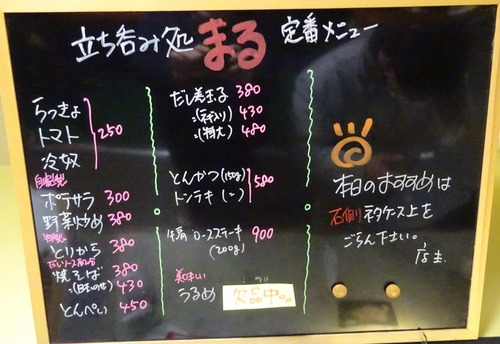 立ち呑み処 まる 定番メニュー
らっきょ
トマト 250
冷奴
自家製
ポテサラ 300
野菜炒め 380
とりから 380
焼そば 380
〃(目玉のせ) 430
とんぺい 450
だし巻玉子 380
〃(ネギ入り) 430
〃(特大) 480
とんかつ(150g) 580
トンテキ(〃)
牛肩ロースステーキ 900
(200g)
美味しい
うるめ 欠品中。。
本日のおすすめは
右側ネタケース上を
ごらん下さい。
店主